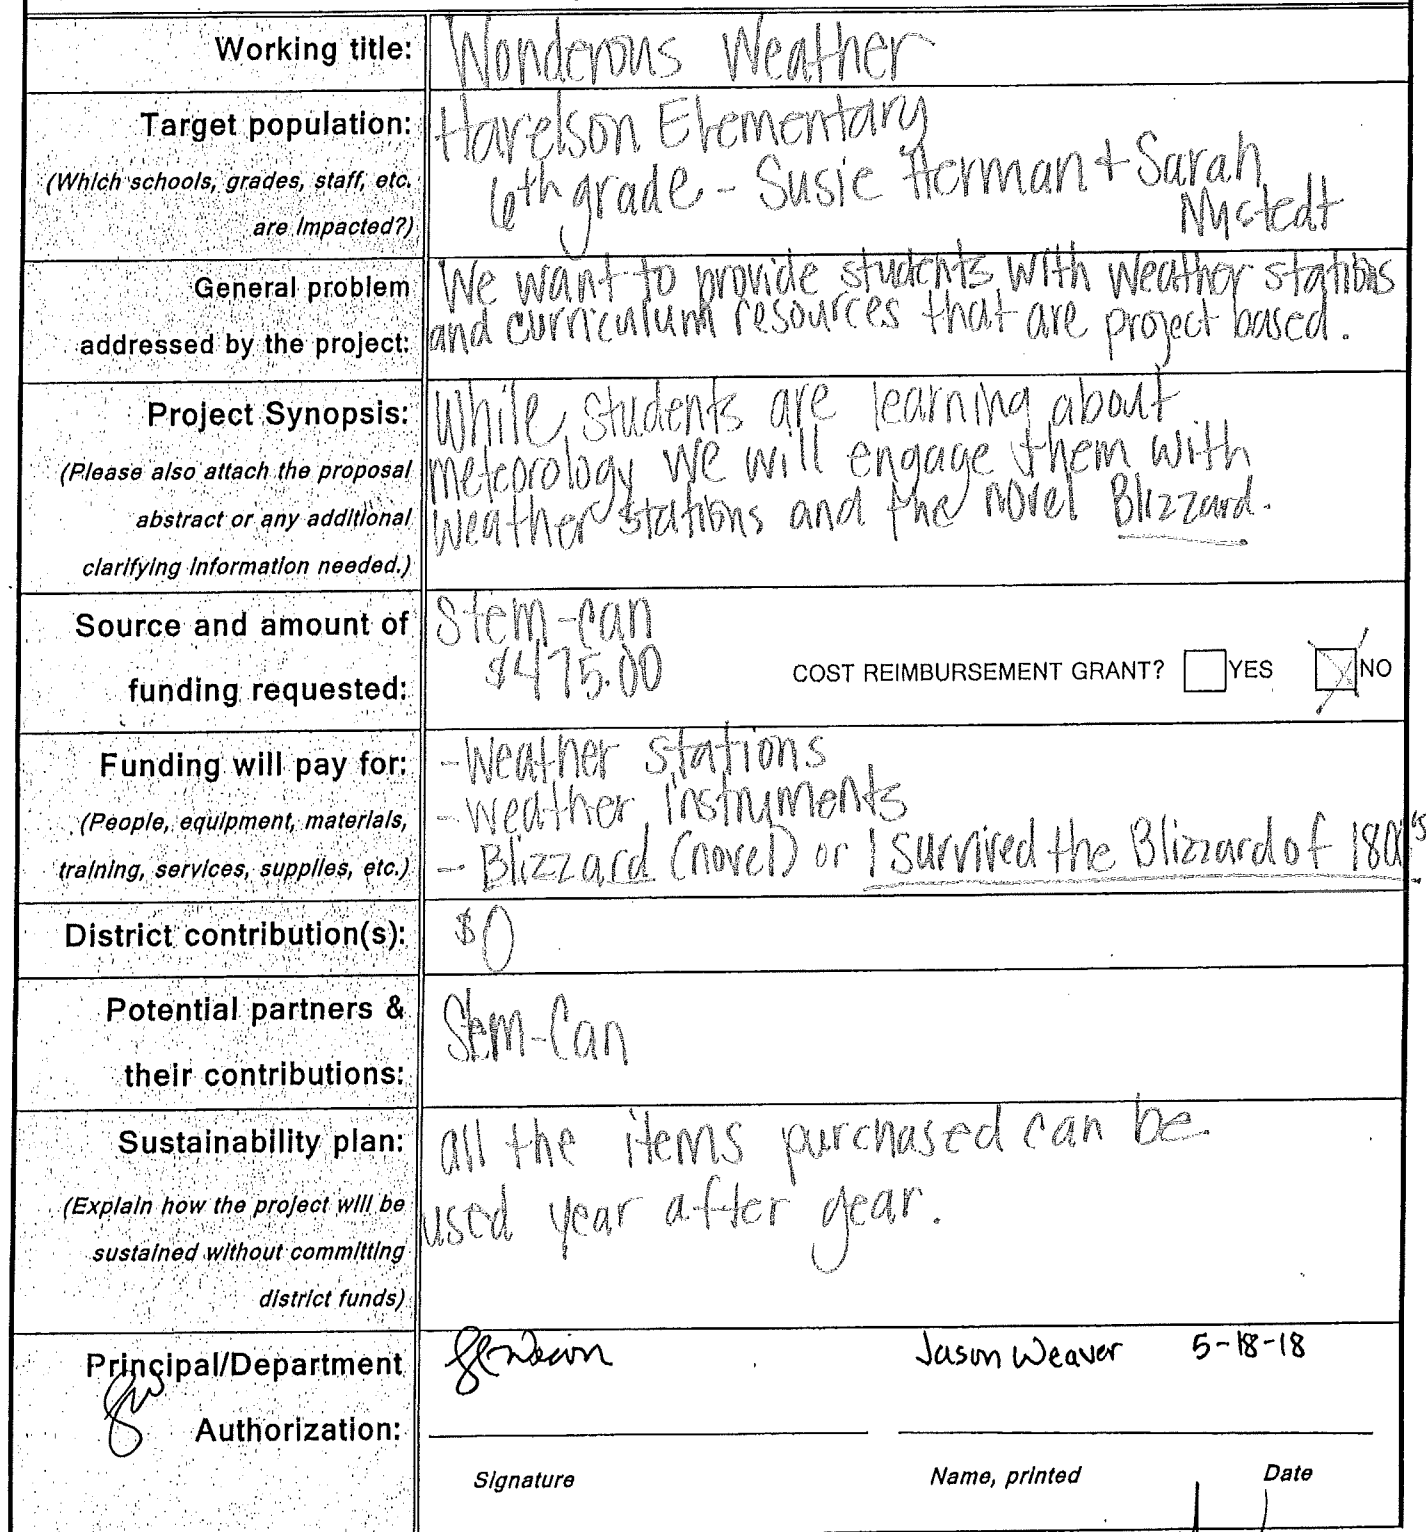 Working title:
Wonderous Weather
Target population:
(Which schools, grades, staff, etc.
are Impacted?)
Harelson Elementary
6th grade - Susie Herman + Sarah
Nystedt
General problem
addressed by the project:
We want to provide students with weather stations
and curriculum resources that are project based.
Project Synopsis:
(Please also attach the proposal
abstract or any additional
clarifying Information needed.)
While students are learning about
meteorology we will engage them with
weather stations and the novel Blizzard.
Source and amount of
funding requested:
Stem-can
$475.00
COST REIMBURSEMENT GRANT? YES NO
Funding will pay for:
(People, equipment, materials,
training, services, supplies, etc.)
-Weather stations
-weather instruments
- Blizzard (novel) or I survived the Blizzard of
District contribution(s):
$0
Potential partners &
their contributions:
Stem-Can
Sustainability plan:
(Explain how the project will be
sustained without committing
district funds)
all the items purchased can be
used year after year.
Principal/Department
Authorization:
Jason Weaver 5-18-18
Signature Name, printed Date